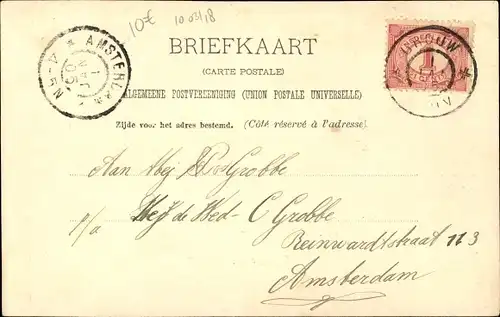 10€
10.03/18
AMSTERDAM
BRIEFKAART
(CARTE POSTALE)
ALGEMEENE POSTVEREENIGING (UNION POSTALE UNIVERSELLE)
Zijde voor het adres bestemd. (Côté réservé à l'adresse)
Aan Mej Grobbe
p/a Wed- C Grobbe
Reinwardtstraat 113
Amsterdam